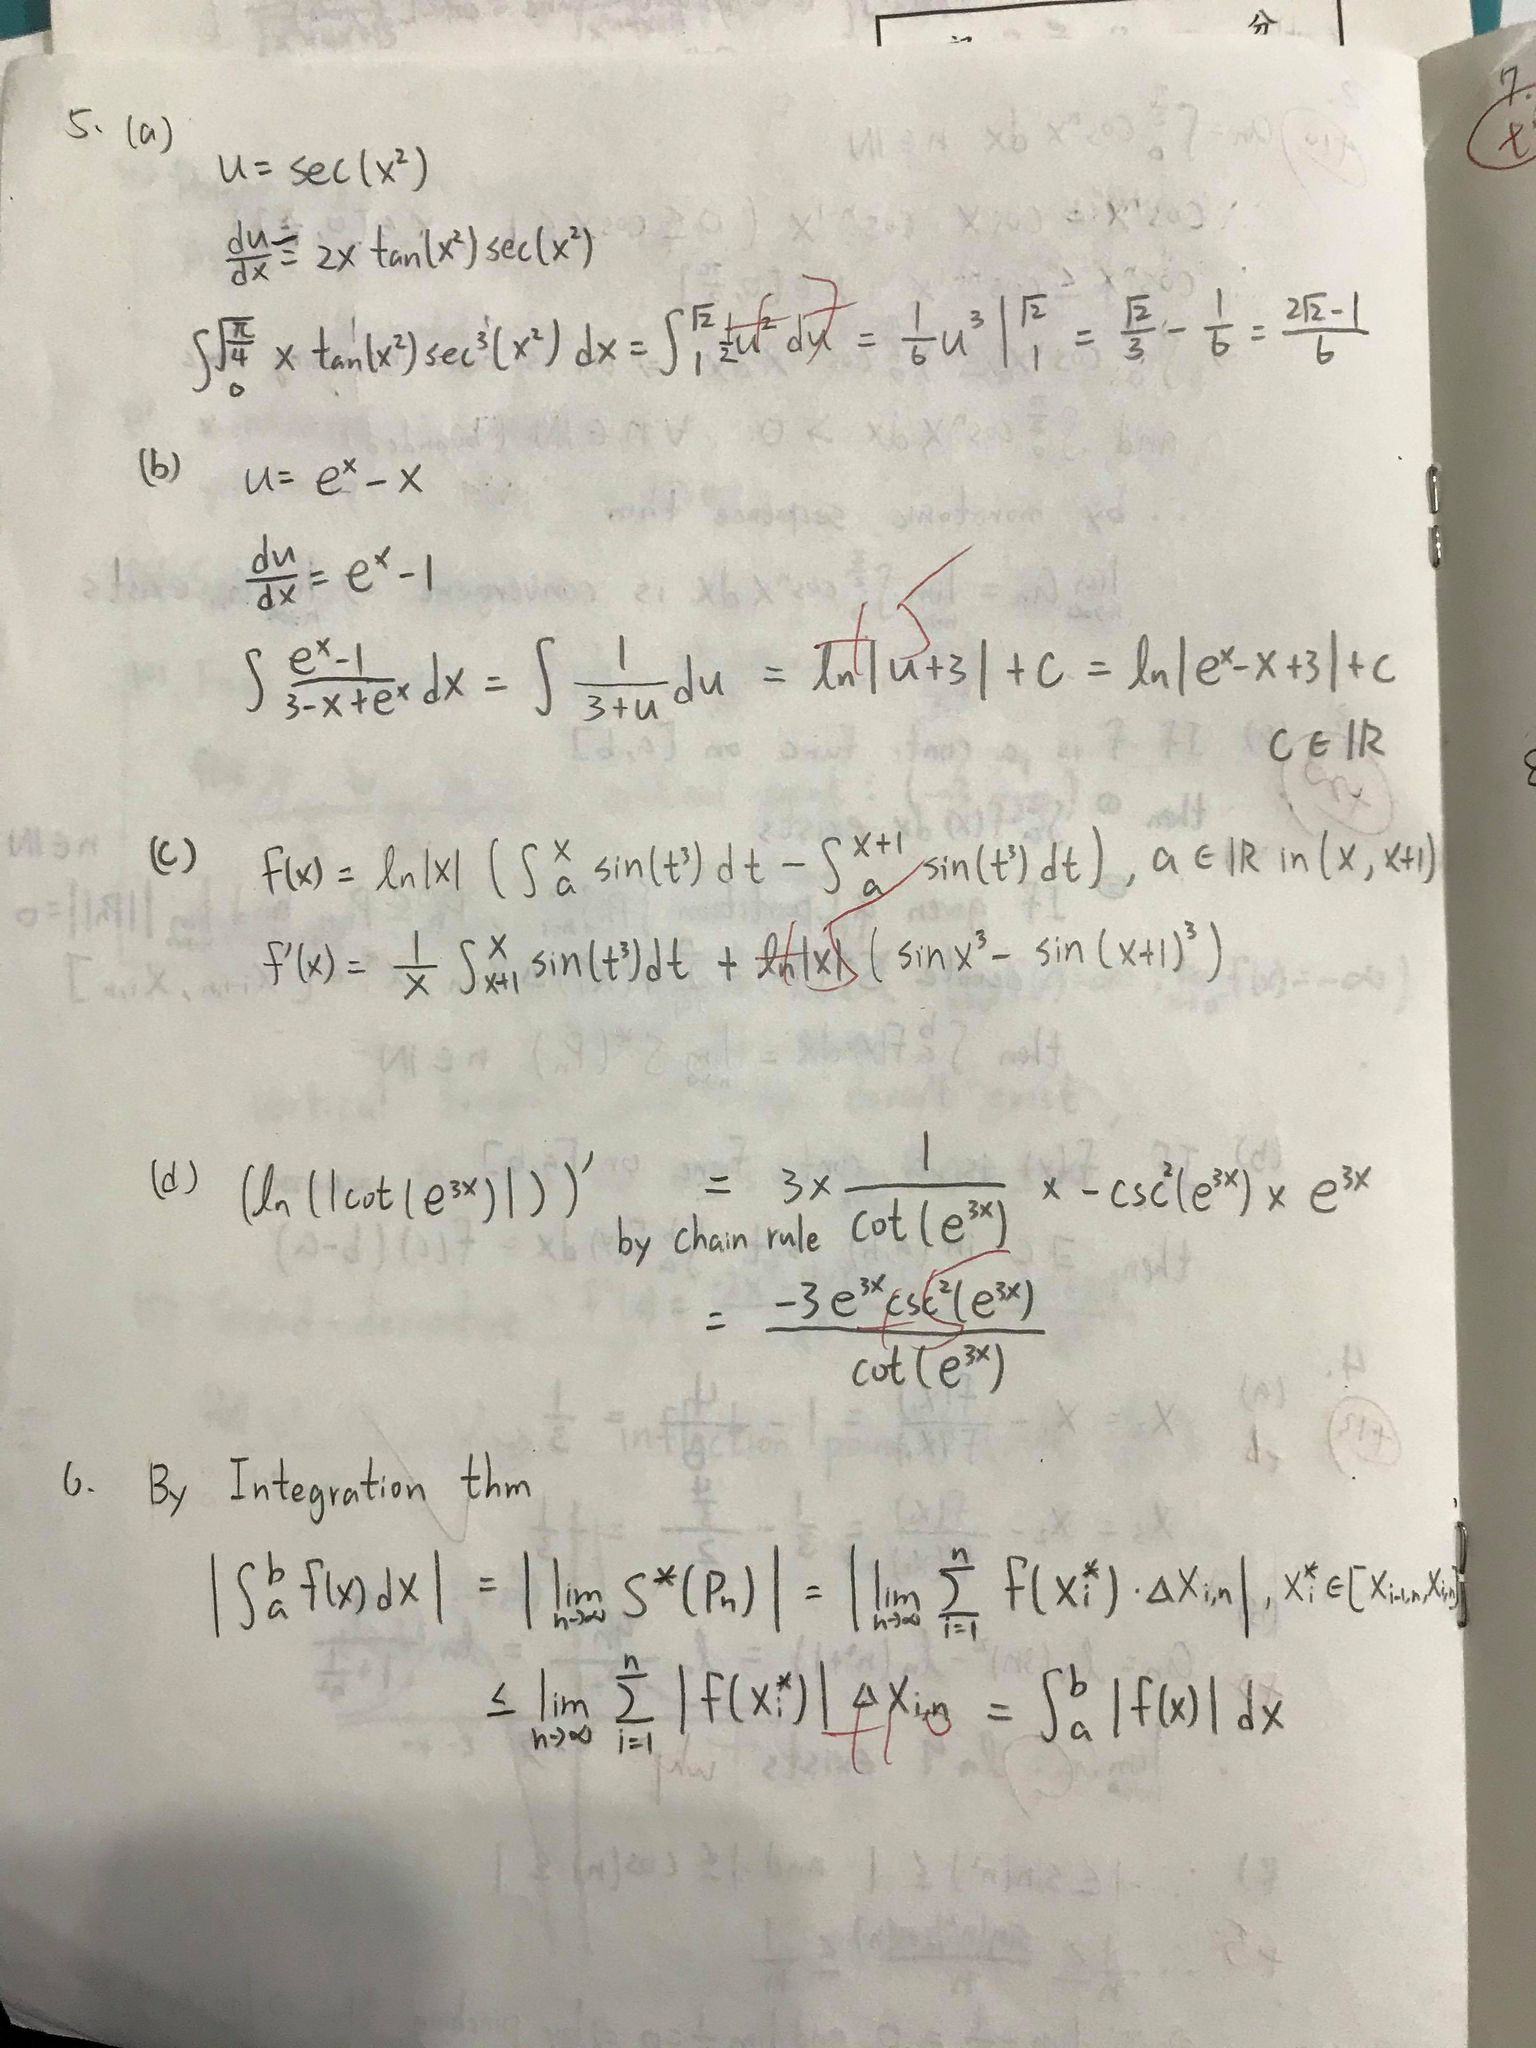 分
7.
5. (a)
u = sec(x²)
du/dx = 2x tan(x²) sec(x²)
∫₀^√(π/4) x tan(x²) sec³(x²) dx = ∫₁^√2 ½u² du = 1/6 u³ |₁^√2 = √2/3 - 1/6 = (2√2-1)/6
(b) u = eˣ - x
du/dx = eˣ - 1
∫ (eˣ-1)/(3-x+eˣ) dx = ∫ 1/(3+u) du = ln|u+3| + C = ln|eˣ-x+3| + C
C ∈ ℝ
(c) f(x) = ln|x| (∫ₐ^x sin(t³) dt - ∫ₐ^(x+1) sin(t³) dt), a ∈ ℝ in (x, x+1)
f'(x) = 1/x ∫ₓ₊₁^x sin(t³) dt + ln|x| (sin x³ - sin (x+1)³)
(d) (ln(|cot(e³ˣ)|))' = 3 × 1/cot(e³ˣ) × -csc²(e³ˣ) × e³ˣ
by chain rule
= -3e³ˣ csc²(e³ˣ) / cot(e³ˣ)
6. By Integration thm
|∫ₐ^b f(x) dx| = |lim n→∞ S*(Pₙ)| = |lim n→∞ Σ i=1^n f(xᵢ*) · Δxᵢ,ₙ|, xᵢ* ∈ [xᵢ₋₁,ₙ, xᵢ,ₙ]
≤ lim n→∞ Σ i=1^n |f(xᵢ*)| Δxᵢ,ₙ = ∫ₐ^b |f(x)| dx